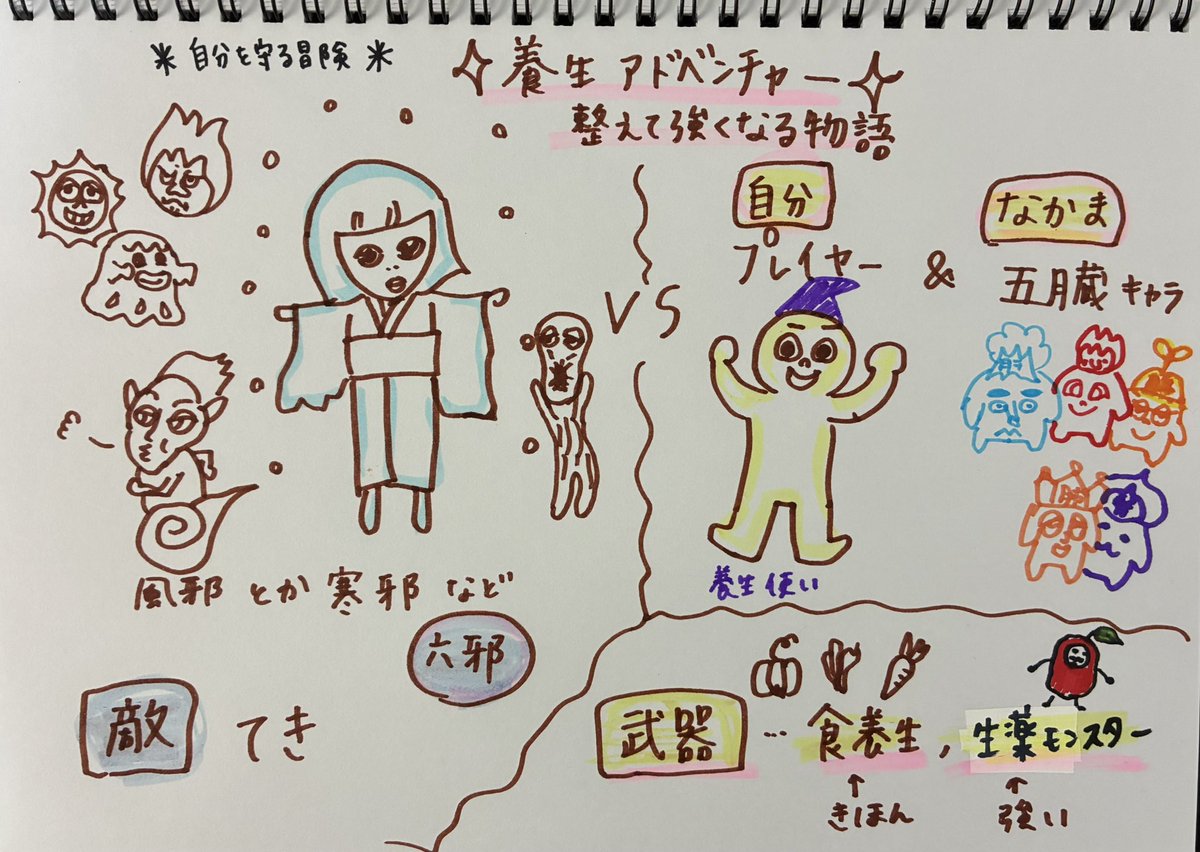 ＊自分を守る冒険＊
✧養生アドベンチャー✧
整えて強くなる物語
VS
自分
プレイヤー
&
なかま
五月蔵キャラ
養生使い
風邪とか寒邪など
六邪
敵 てき
武器 … 食養生, 生薬モンスター
↑ ↑
きほん 強い